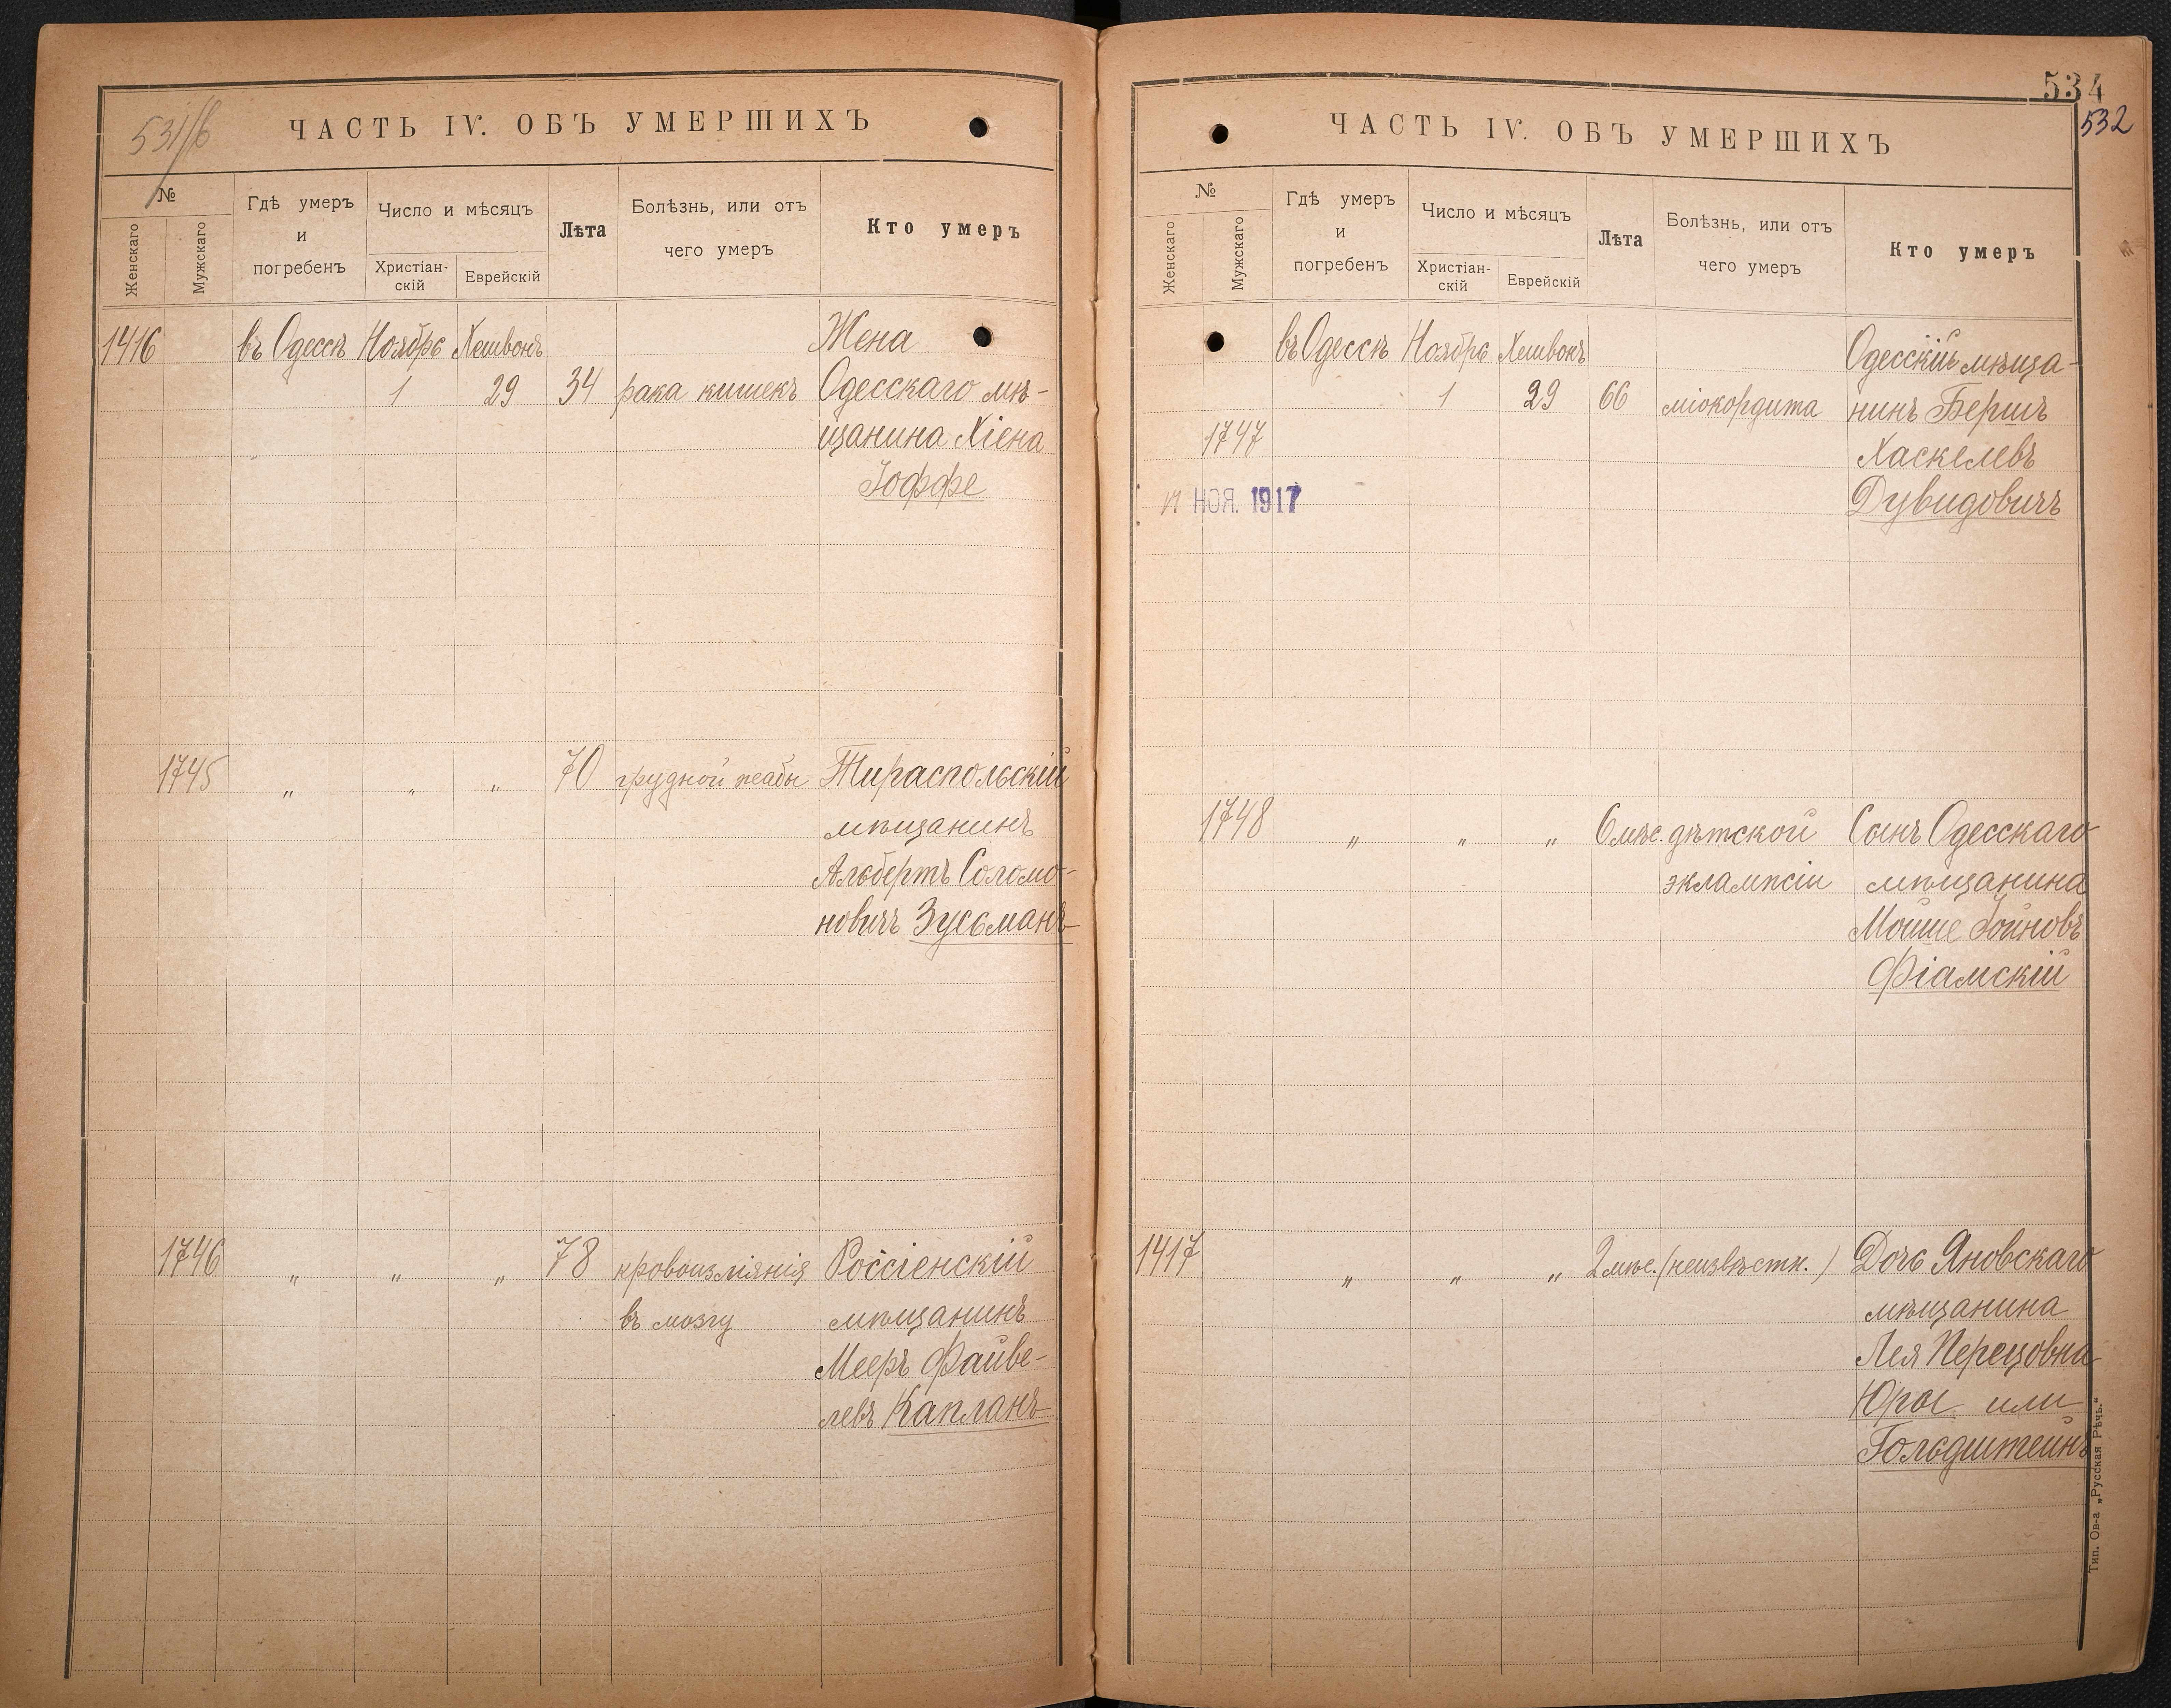 531/б
ЧАСТЬ IV. ОБЪ УМЕРШИХЪ
№
Женскаго
Мужскаго
Гдѣ умеръ
и
погребенъ
Число и мѣсяцъ
Христіан-
скій
Еврейскій
Лѣта
Болѣзнь, или отъ
чего умеръ
Кто умеръ
1416 въ Одессѣ Ноябрь Хешвонъ Жена
1 29 34 рака кишекъ Одесскаго мѣ-
щанина Хіена
Іоффе
1745 " " " 70 грудной жабы Тираспольскій
мѣщанинъ
Альбертъ Соломо-
новичъ Зусьманъ
1746 " " " 78 кровоизліянія Россіенскій
въ мозгу мѣщанинъ
Мееръ Файве-
левъ Капланъ
534
532
ЧАСТЬ IV. ОБЪ УМЕРШИХЪ
№
Женскаго
Мужскаго
Гдѣ умеръ
и
погребенъ
Число и мѣсяцъ
Христіан-
скій
Еврейскій
Лѣта
Болѣзнь, или отъ
чего умеръ
Кто умеръ
въ Одессѣ Ноябрь Хешвонъ Одесскій мѣща-
1 29 66 міокордита нинъ Бершъ
1747 Хаскелевъ
НОЯ. 1917 Дувидовичъ
1748 " " " 6 мѣс. дѣтской Сынъ Одесскаго
эклампсіи мѣщанина
Мойше Іойновъ
Фіамскій
1417 " " " 2 мѣс. (неизвѣстн.) Дочь Яновскаго
мѣщанина
Лея Перецовна
Юры или
Гольдштейнъ
Тип. Ов-а „Русская Рѣчь."